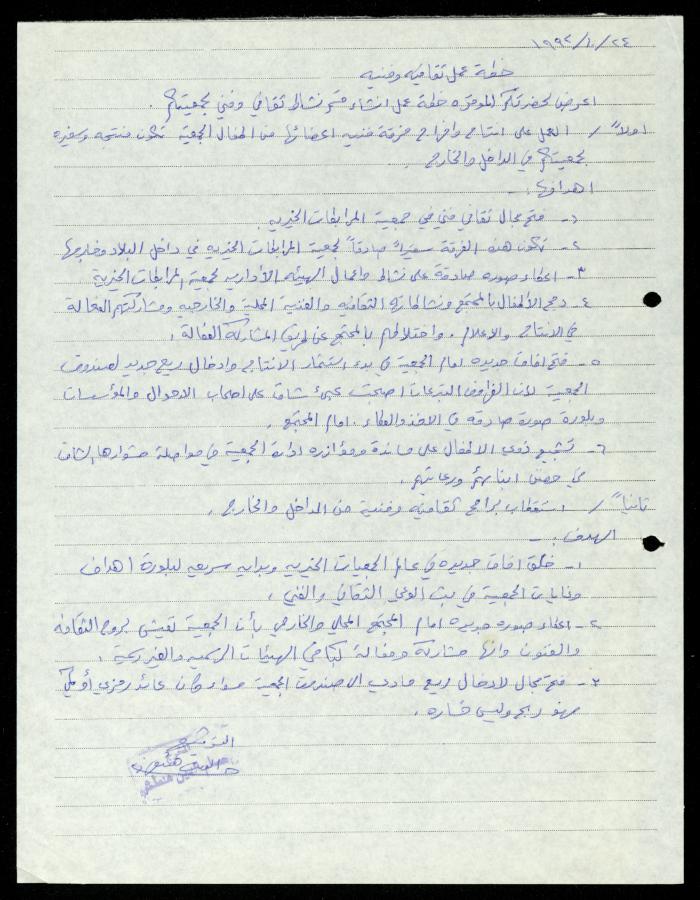 ١٩٩٢/١٠/٢٤
خطة عمل ثقافيه وفنيه
اعرض لحضرتكم الموقره خطة عمل انشاء قسم نشاط ثقافي وفني لجمعيتكم .
اولاً / العمل على انتاج وافراح فرقة فنيه اعضائها من اطفال الجمعية تكون منتجه وسفيره
لجمعيتكم في الداخل والخارج .
اهدافها : -
١- فتح مجال ثقافي فني في جمعية المرابطات الخيريه .
٢- تكون هذه الفرقة سفيراً صادقاً لجمعية المرابطات الخيريه في داخل البلاد وخارجها
٣- اعطاء صوره صادقة على نشاط واعمال الهيئه الأداريه لجمعية المرابطات الخيرية
٤- دمج الأطفال بالمجتمع ونشاطاته الثقافيه والفنية المحلية والخارجيه ومشاركتهم الفعالة
في الانتاج والاعلام . واختلاطهم بالمجتمع عن طريق المشاركة الفعالة .
٥- فتح افاق جديده امام الجمعية في بدء استثمار الانتاج وادخال ريع جديد لصندوق
الجمعية لأن التبرعات اصبحت عبئ شاق على اصحاب الاموال والمؤسسات
وبلورة صورة صادقه في الاخذ والعطاء . امام المجتمع .
٦- تشجيع ذوي الاطفال على مساندة ومؤازره ادارة الجمعية في مواصلة مشوارها الشاق
في حضن ابنائهم ورعايتهم .
ثانياً / استقطاب برامج ثقافيه وفنية من الداخل والخارج .
الهدف : -
١- خلق افاق جديده في عالم الجمعيات الخيريه وبدايه سريعه لبلورة اهداف
وغايات الجمعية في بث الوعي الثقافي والفني .
٢- اعطاء صوره جديده امام المجتمع المحلي والخارجي بأن الجمعية تعيش بروح الثقافه
والفنون وانها مشاركه وفعالة لباقي الهيئات الرسميه والغير رسمية .
٣- فتح مجال لادخال ريع مادي الى صندوق الجمعية سواء كان عائد رمزي أو كلي
فهو ربح وليس خساره .